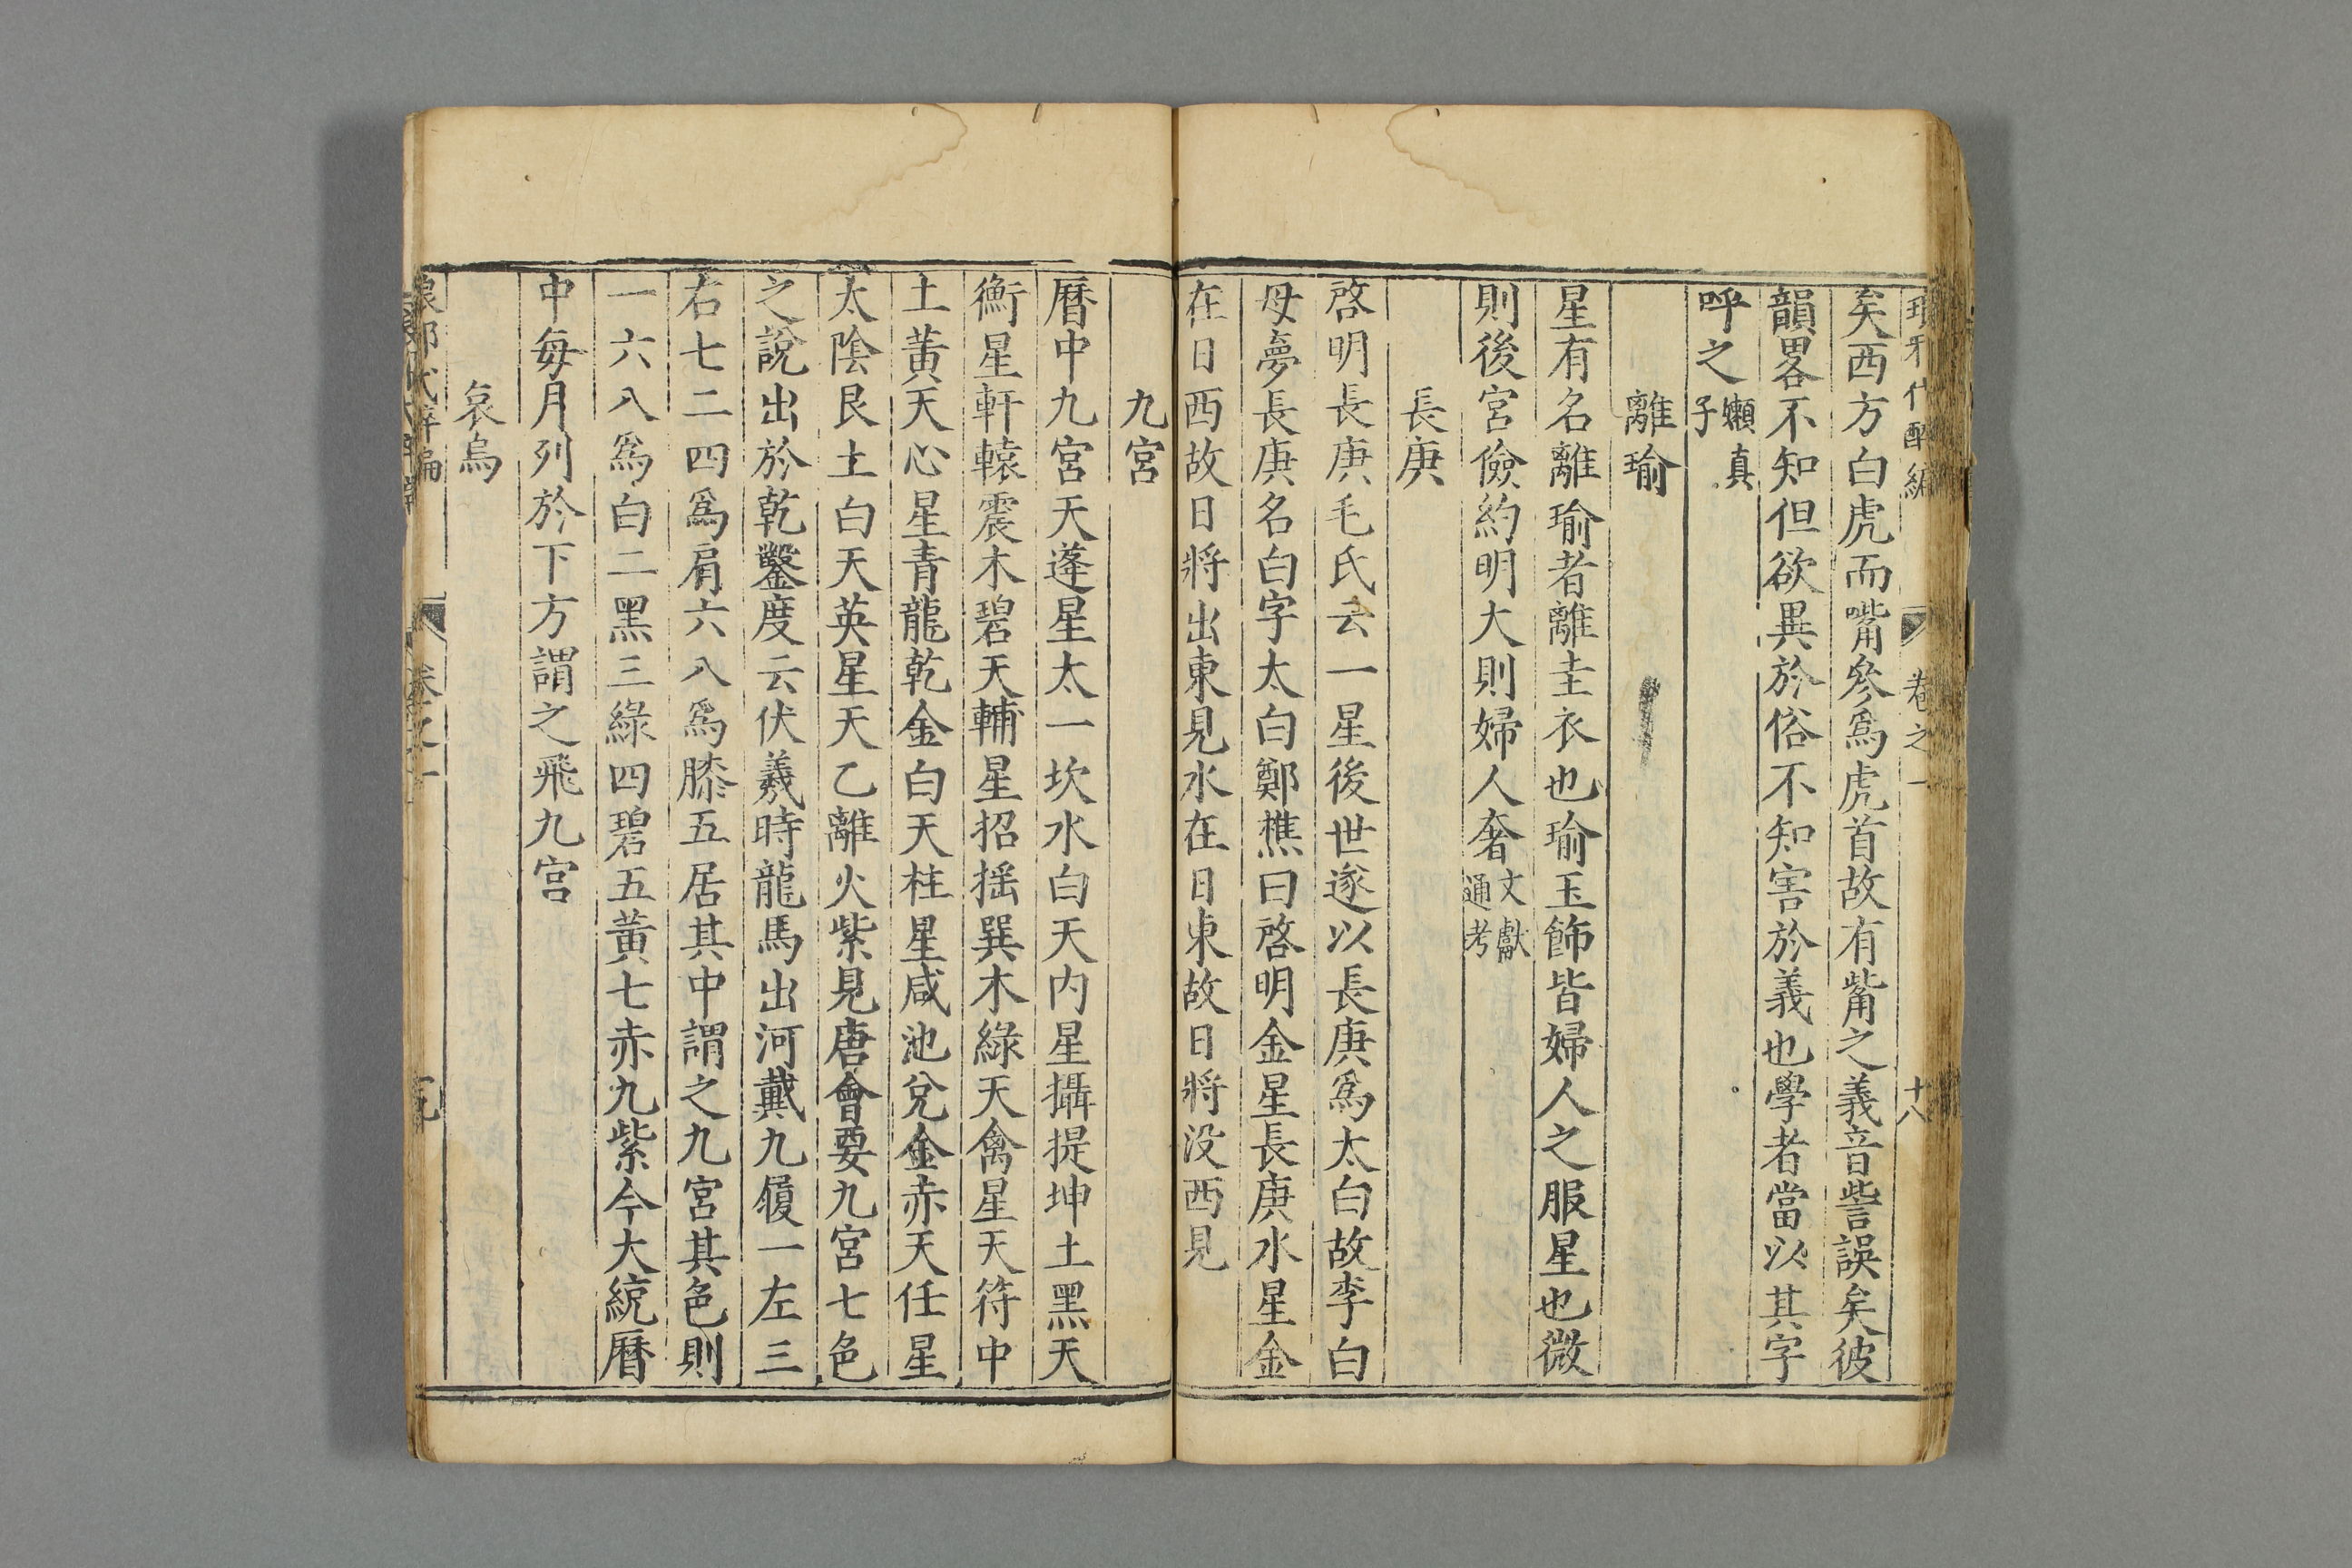 琅邪代醉編 卷之一 十八
矣西方白虎而嘴參爲虎首故有觜之義音訾誤矣彼
韻畧不知但欲異於俗不知害於義也學者當以其字
呼之嬾真子
離瑜
星有名離瑜者離圭衣也瑜玉飾皆婦人之服星也微
則後宮儉約明大則婦人奢文獻通考
長庚
啓明長庚毛氏云一星後世遂以長庚爲太白故李白
母夢長庚名白字太白鄭樵曰啓明金星長庚水星金
在日西故日將出東見水在日東故日將没西見
九宮
曆中九宮天蓬星太一坎水白天内星攝提坤土黑天
衡星軒轅震木碧天輔星招揺巽木綠天禽星天符中
土黃天心星青龍乾金白天柱星咸池兌金赤天任星
太陰艮土白天英星天乙離火紫見唐會要九宮七色
之說出於乾鑿度云伏羲時龍馬出河戴九履一左三
右七二四爲肩六八爲膝五居其中謂之九宮其色則
一六八爲白二黑三綠四碧五黃七赤九紫今大統曆
中每月列於下方謂之飛九宮
哀烏
卷之一